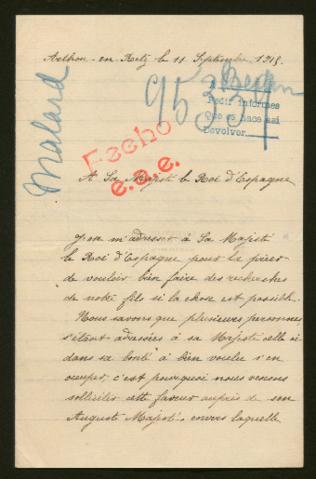 Arthon-en-Retz le 11 Septembre 1915.
Malard
95
Pedir informes
que se hace así
Devolver
Fecho
e.a.e.
A Sa Majesté le Roi d'Espagne
J'ose m'adresser à Sa Majesté
le Roi d'Espagne pour le prier
de vouloir bien faire des recherches
de notre fils si la chose est possible.
Nous savons que plusieurs personnes
s'étant adressées à sa Majesté celle-ci
dans sa bonté à bien voulue s'en
occuper, c'est pourquoi nous venons
solliciter cette faveur auprès de son
Auguste Majesté, envers laquelle